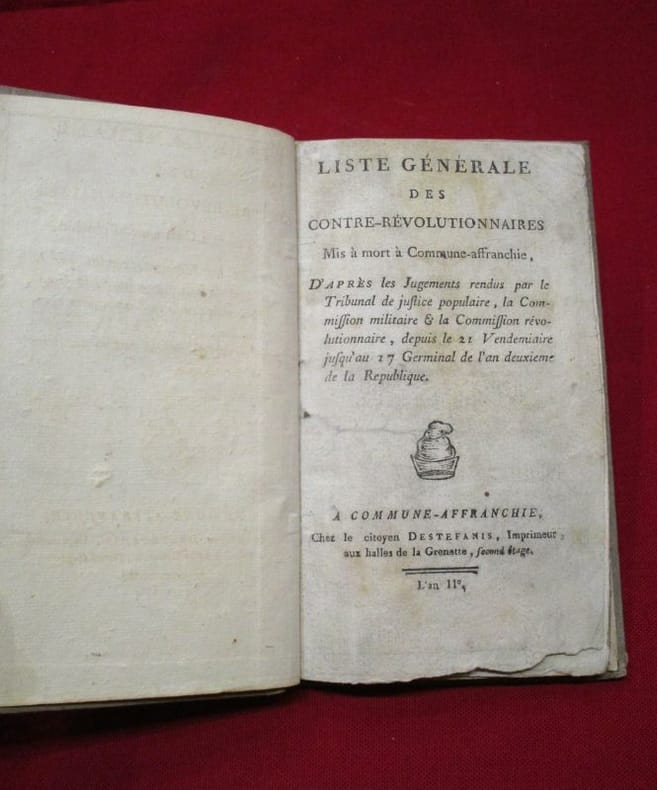 LISTE GÉNÉRALE
DES
CONTRE-RÉVOLUTIONNAIRES
Mis à mort à Commune-affranchie,
D'APRÈS les Jugements rendus par le
Tribunal de juſtice populaire, la Com-
miſſion militaire & la Commiſſion révo-
lutionnaire, depuis le 21 Vendemiaire
juſqu'au 17 Germinal de l'an deuxieme
de la Republique.
A COMMUNE-AFFRANCHIE,
Chez le citoyen DESTEFANIS, Imprimeur,
aux halles de la Grenette, ſecond étage.
L'an IIe.